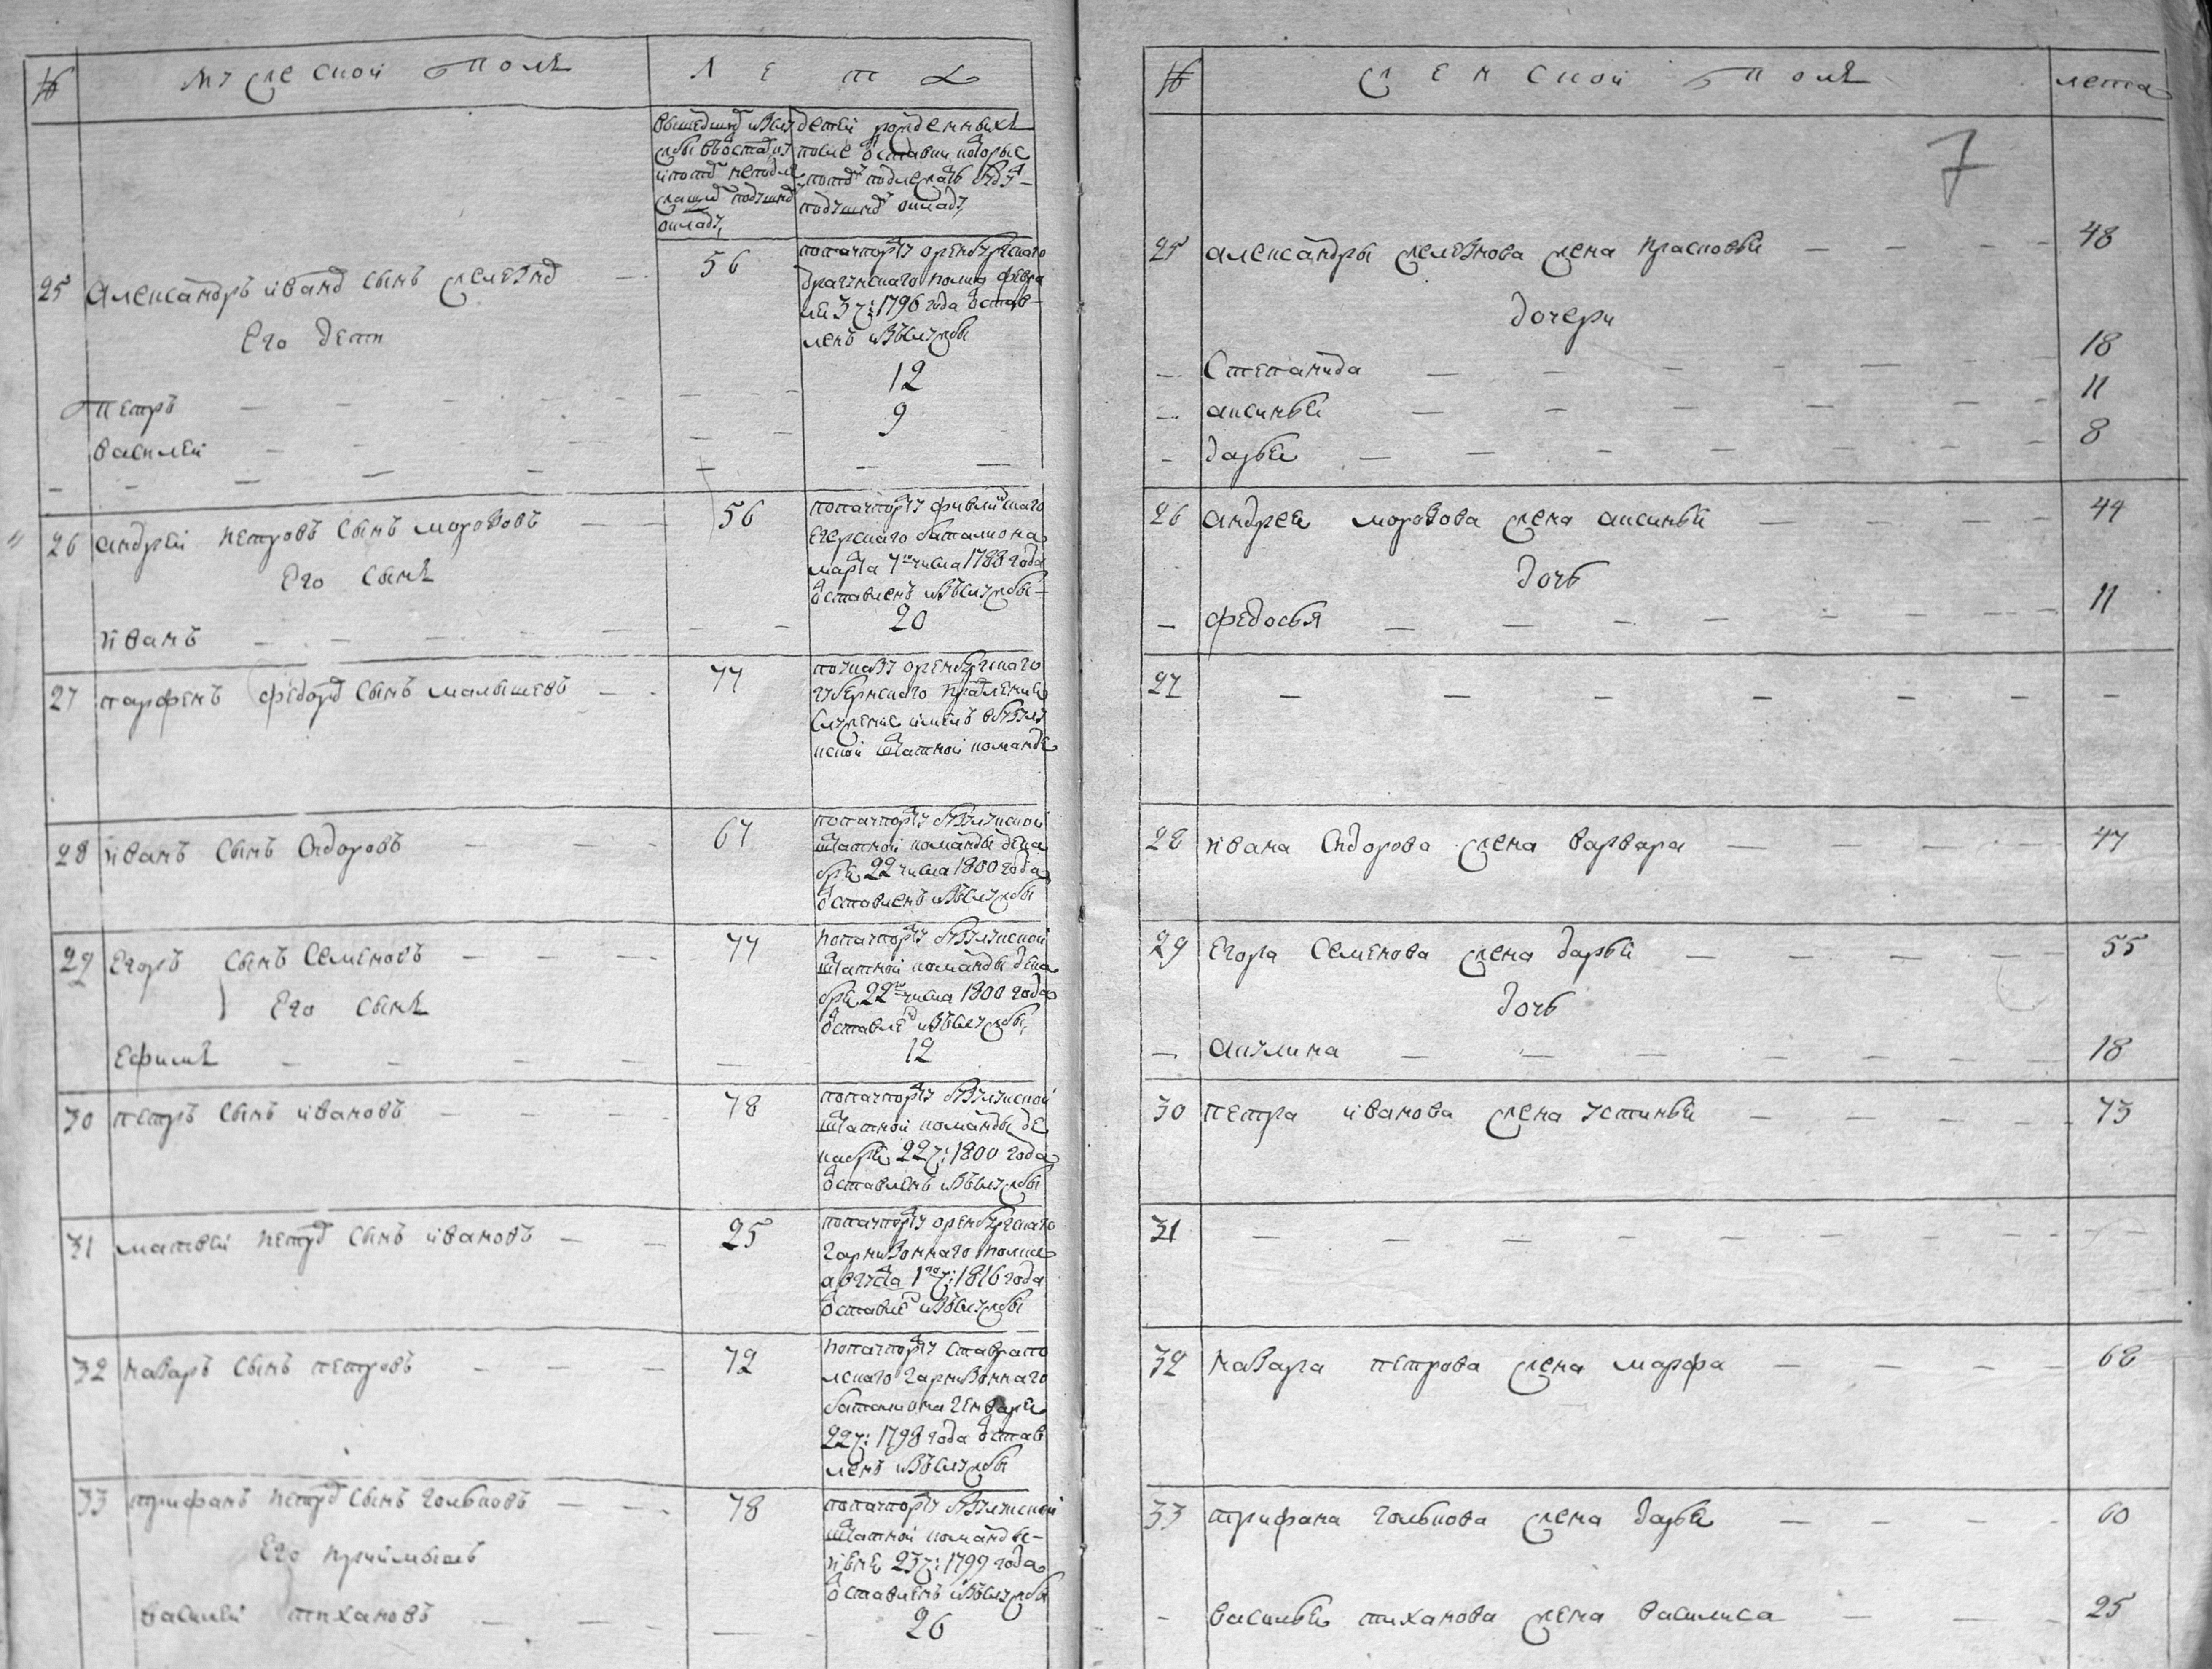 № мужескои полъ Л е т а
вышедшихъ изслу детей рожденныхъ
жбы въоставку после оставки которые
и потому неподле потому подлежать будутъ
жащихъ подушному подушному окладу
окладу
25 Александръ иванов сынъ селезнев 56 попачпорту оренбургскаго
драгунскаго полка февра
ля 3 ч: 1796 года остав
ленъ изъслужбы
Его дети
Петръ 12
василеи 9
26 андреи петровъ сынъ морозовъ 56 попачпорту финляндскаго
егерскаго баталиона
марта 7го числа 1788 года
оставленъ изъслужбы
Его сынъ
иванъ 20
27 парфенъ федоров сынъ малышевъ 77 поуказу оренбургскаго
губернскаго правления
служение имелъ вбузулу
кской штатной команде
28 иванъ сынъ сидоровъ 67 попачпорту бузулукской
штатной команды дека
бря 22 числа 1800 года
оставленъ изъслужбы
29 Егоръ сынъ Семеновъ 77 попачпорту бузулукской
штатной команды дека
бря 22го числа 1800 года
оставлен изъслужбы
Его сынъ
Ефимъ 12
30 петръ сынъ ивановъ 78 попачпорту бузулукской
штатной команды де
кабря 22 ч: 1800 года
оставленъ изъслужбы
31 матвеи петров сынъ ивановъ 25 попачпорту оренбургскаго
гарнизоннаго полка
августа 1го ч: 1816 года
оставлен изъслужбы
32 назаръ сынъ петровъ 72 попачпорту ставропо
лскаго гарнизоннаго
баталиона генваря
22 ч: 1798 года остав
ленъ изъслужбы
33 трифанъ петров сынъ голыковъ 78 попачпорту бузулукской
штатной команды
июня 23 ч: 1799 года
оставленъ изъслужбы
Его приимышъ
василеи тихановъ 26
№ женской полъ лета
7
25 александры селезнова жена прасковья 48
дочери
Степанида 18
аксинья 11
дарья 8
26 андрея морозова жена аксинья 44
дочь
федосья 11
27
28 ивана сидорова жена варвара 47
29 Егора Семенова жена дарья 55
дочь
акулина 18
30 петра иванова жена устинья 73
31
32 назара петрова жена марфа 68
33 трифана голыкова жена дарья 60
василья тиханова жена василиса 25